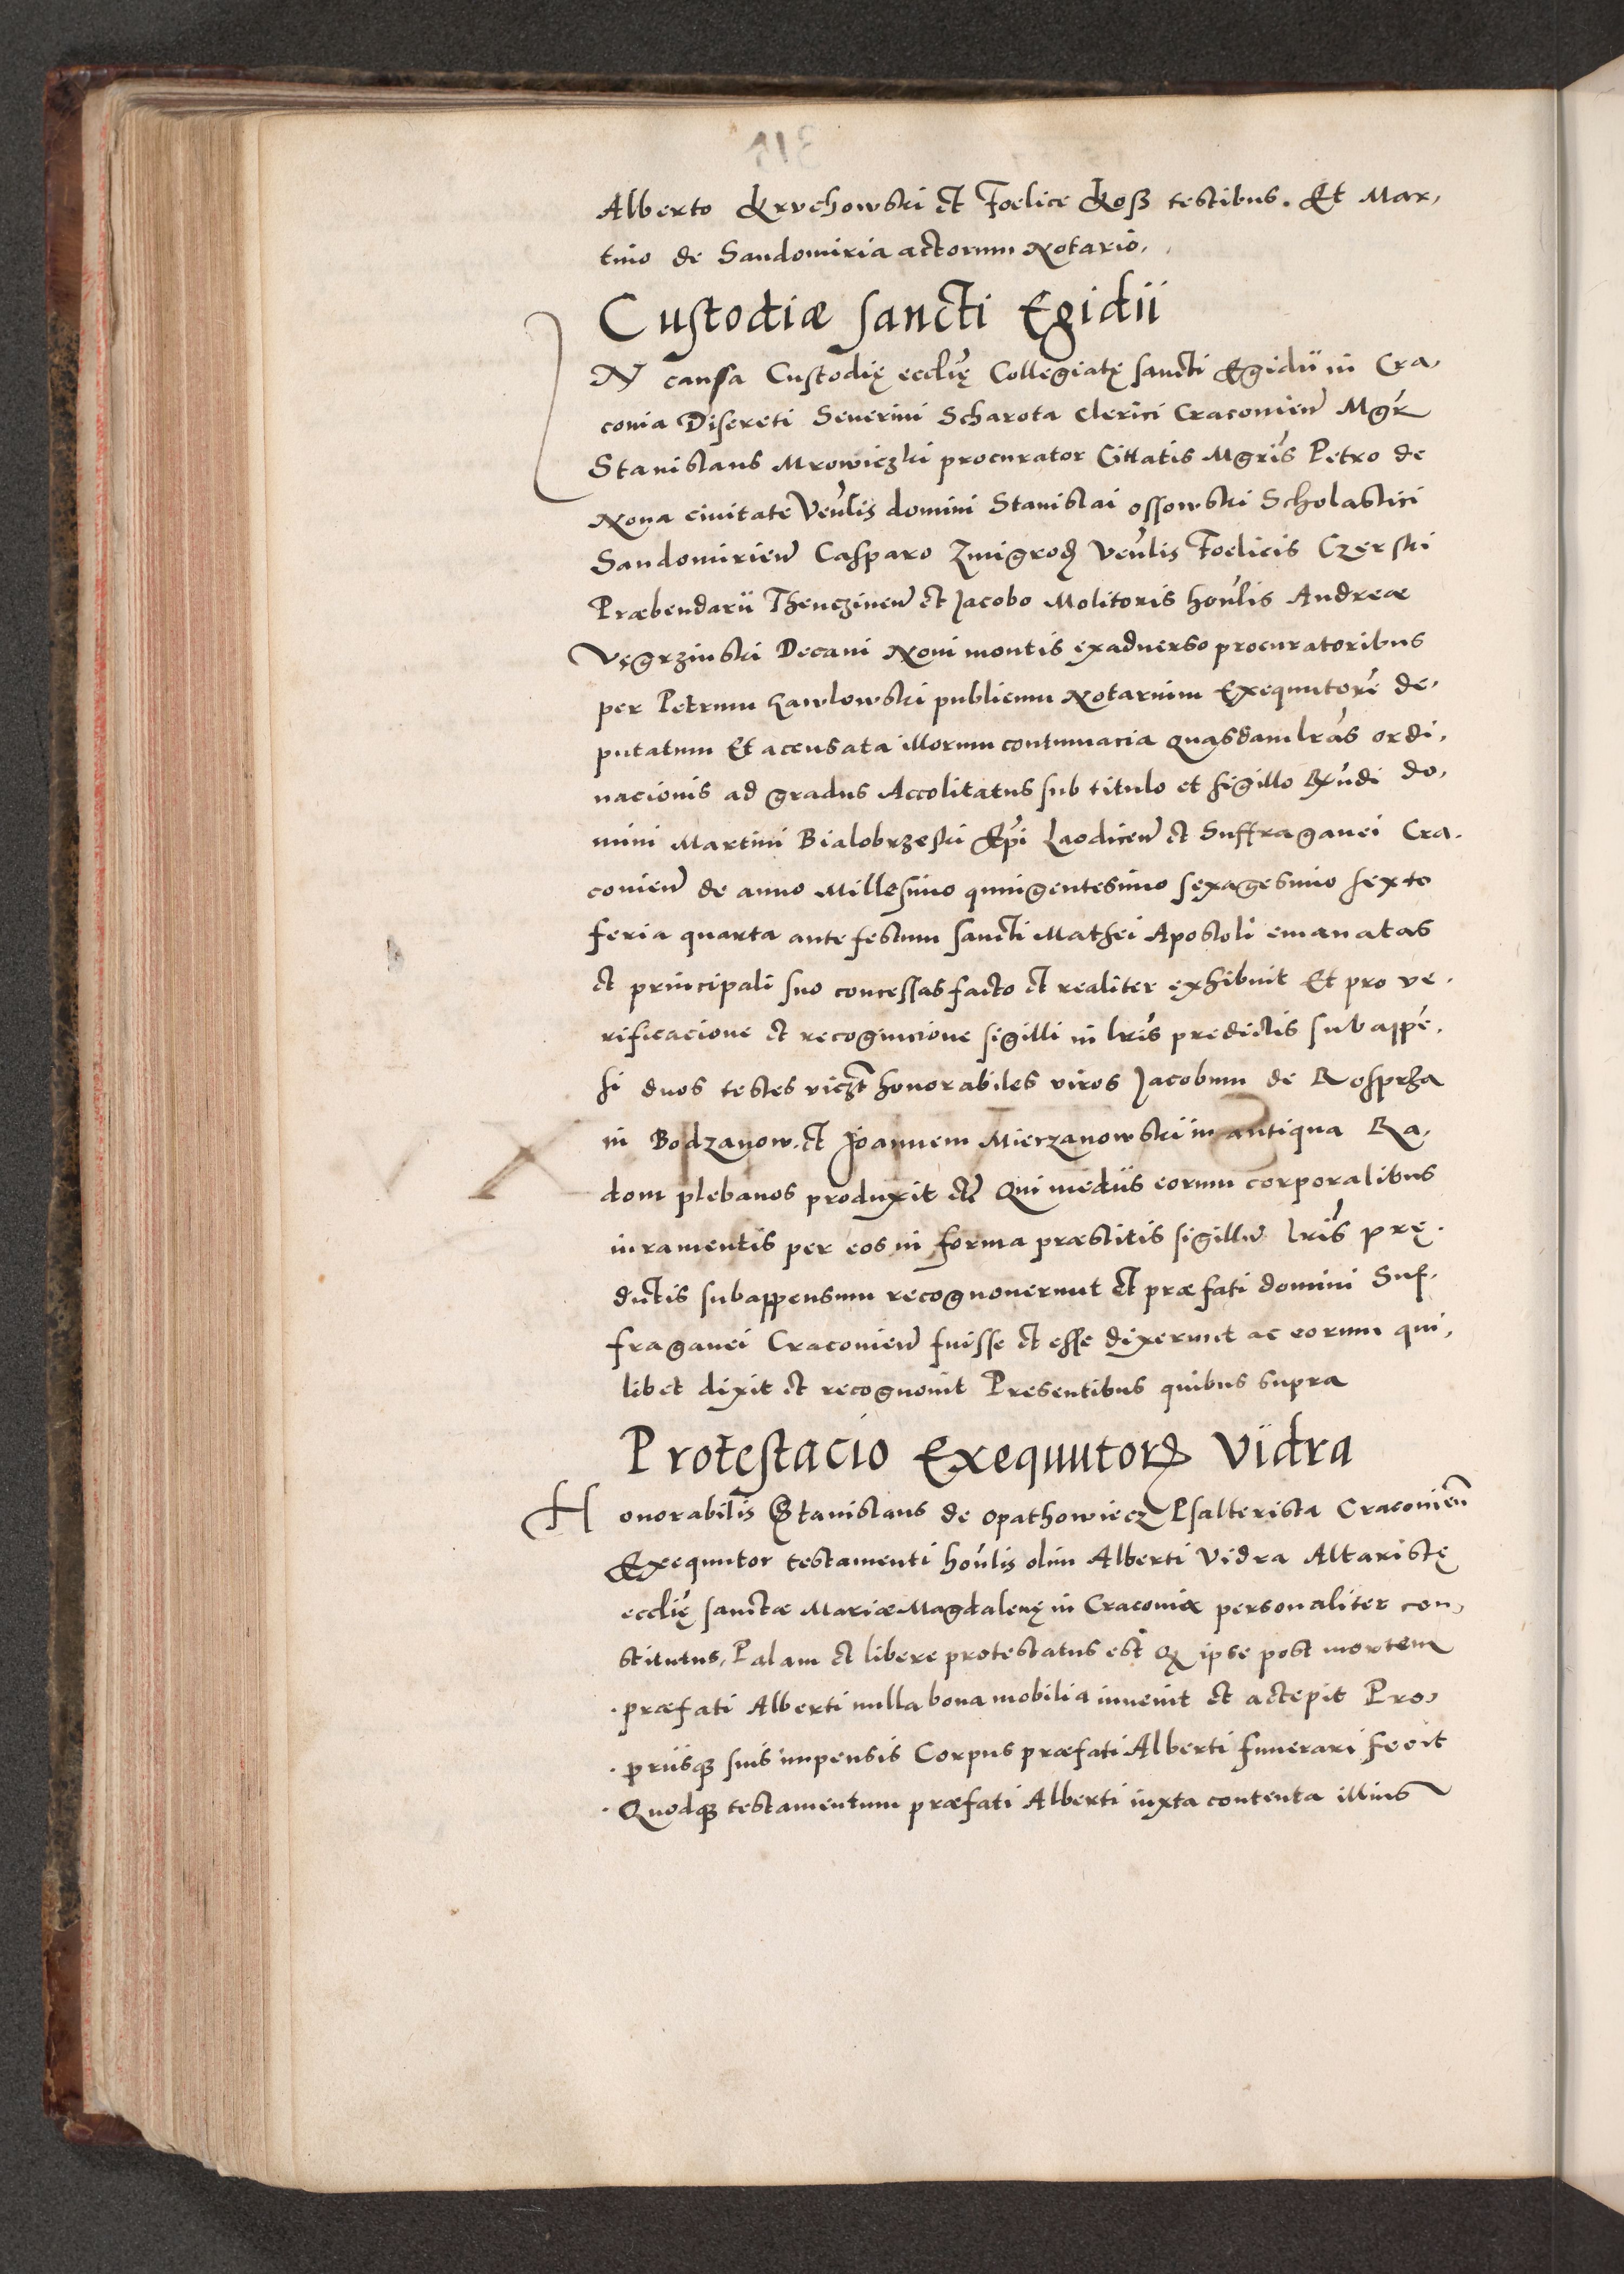 Alberto Kruchowski et Foelice Koss testibus. Et Mar,
tino de Sandomiria actorum Notario.
Custodiæ sancti Egidii
IN causa Custodię eccłię Collegiatę sancti Egidii in Cra,
couia Discreti Seuerini Scharota Clerici Cracouien̄ Mgr̄
Stanislaus Mrowiczki procurator Cittatis Mgr̄is Petro de
Noua ciuitate Veńlis domini Stanislai ossowski Scholastici
Sandomirien̄ Casparo Zmigrod Veńlis Foelicis Czerski
Præbendarii Thenczinen̄ et Jacobo Molitoris hońlis Andreæ
Vęgrzinski Decani Noui montis exaduerso procuratoribus
per Petrum Kawlowski publicum Notarium Exequutorē de,
putatum Et accusata illorum contumacia quasdam lr̄as ordi,
nacionis ad gradus Accolitatus sub titulo et sigillo Rn̄di do,
mini Martini Bialobrzeski Ep̄i Laodicen̄ et Suffraganei Cra.
couien̄ de anno Millesimo quingentesimo sexagesimo sexto
feria quarta ante festum sancti Mathei Apostoli emanatas
et principali suo concessas facto et realiter exhibuit Et pro ve.
rificacione et recognicione sigilli in lr̄is predictis subappē.
si duos testes viczt honorabiles viros Jacobum de Rosprza
in Bodzanow. et Joannem Mierzanowski in antiqua Ra.
dom plebanos produxit etc̄ Qui mediis eorum corporalibus
iuramentis per eos in forma præstitis sigillū lr̄is prę.
dictis subappensum recognouerunt et præfati domini Suf.
fraganei Cracouien̄ fuisse et esse dixerunt ac eorum qui,
libet dixit et recognouit Presentibus quibus supra
Protestacio Exequutorꝝ Vidra
Honorabilis Stanislaus de Opathowiecz Psalterista Cracouien̄
Exequutor testamenti hońlis olim Alberti Vidra Altaristę
eccłię sanctæ Mariæ Magdalenę in Cracouia personaliter con,
stitutus, Palam et libere protestatus est Qꝫ ipse post mortem
præfati Alberti nulla bona mobilia inuenit et accepit Pro,
priisqꝫ suis impensis Corpus præfati Alberti funerari fecit
Quodqꝫ testamentum præfati Alberti iuxta contenta illius